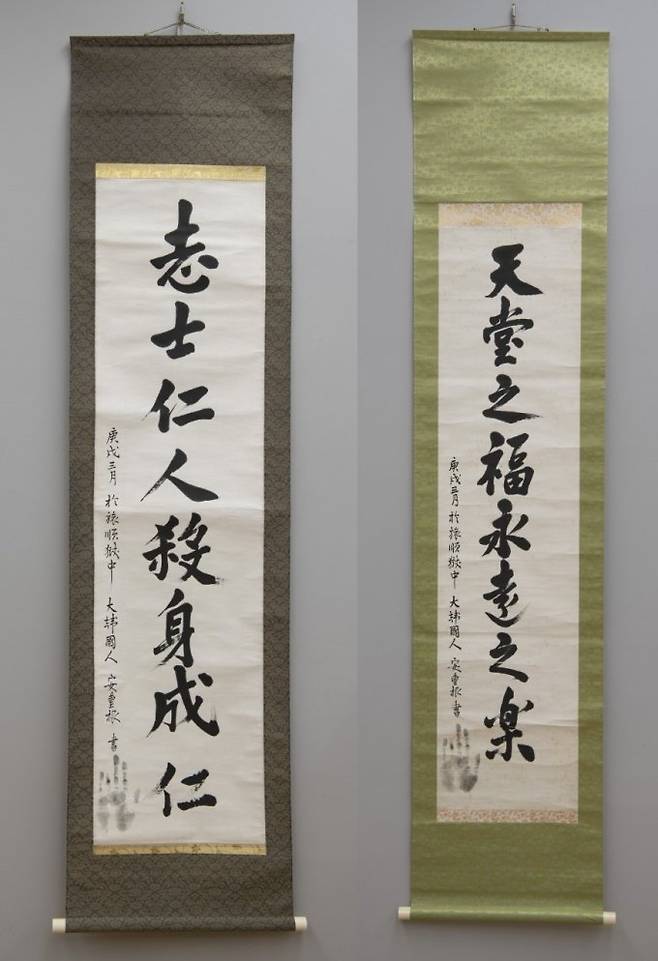 志士仁人殺身成仁
庚戌三月 於旅順獄中 大韓國人 安重根 書
天堂之福永遠之楽
庚戌三月 於旅順獄中 大韓國人 安重根 書